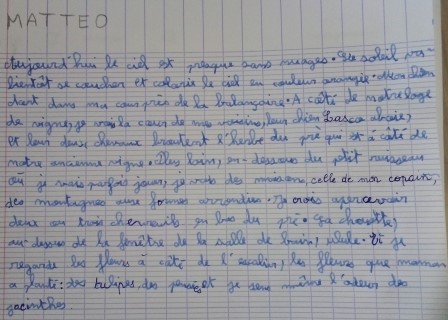 MATTEO
Aujourd'hui le ciel est presque sans nuages. Le soleil va
bientôt se coucher et colorie le ciel en couleur orangée. Mon chien
dort dans ma cour près de la balançoire. A côté de notre
de vigne, je vois la cour de mes voisins, leur chien Gasco aboie,
et leurs deux chevaux broutent l'herbe du pré qui est à côté de
notre ancienne vigne. Plus loin, en-dessous du petit ruisseau
où je vais parfois jouer, je vois des maisons, celle de mon copain,
des montagnes aux formes arrondies. Je crois apercevoir
deux ou trois chevreuils en bas du pré. La chouette,
au-dessus de la fenêtre de la salle de bain, ulule. Et je
regarde les fleurs à côté de l'escalier, les fleurs que maman
a planté: des tulipes, des pensées et je sens même l'odeur des
jacinthes.